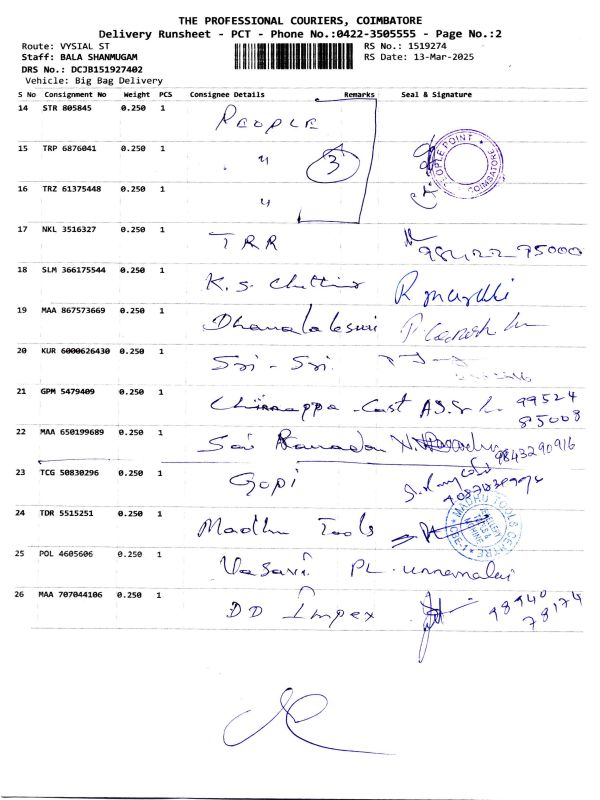 THE PROFESSIONAL COURIERS, COIMBATORE
Delivery Runsheet - PCT - Phone No.:0422-3505555 - Page No.:2
Route: VYSIAL ST RS No.: 1519274
Staff: BALA SHANMUGAM RS Date: 13-Mar-2025
DRS No.: DCJB151927402
Vehicle: Big Bag Delivery
S No Consignment No Weight PCS Consignee Details Remarks Seal & Signature
14 STR 805845 0.250 1 PEOPLE
15 TRP 6876041 0.250 1 〃 3 PEOPLE POINT * COIMBATORE
16 TRZ 61375448 0.250 1 〃
17 NKL 3516327 0.250 1 TRR
18 SLM 366175544 0.250 1 K.S. Chettiar
19 MAA 867573669 0.250 1 Dhanalakshmi
20 KUR 6000626430 0.250 1 Sri - Sri
21 GPM 5479409 0.250 1 Chinnappa 99524
85008
22 MAA 650199689 0.250 1 Sai 9843290916
23 TCG 50830296 0.250 1 Gopi
24 TDR 5515251 0.250 1 Madhu Tools MADHU TOOLS CENTRE
25 POL 4605606 0.250 1 Vasavi
26 MAA 707044106 0.250 1 DD Impex 98940
78174